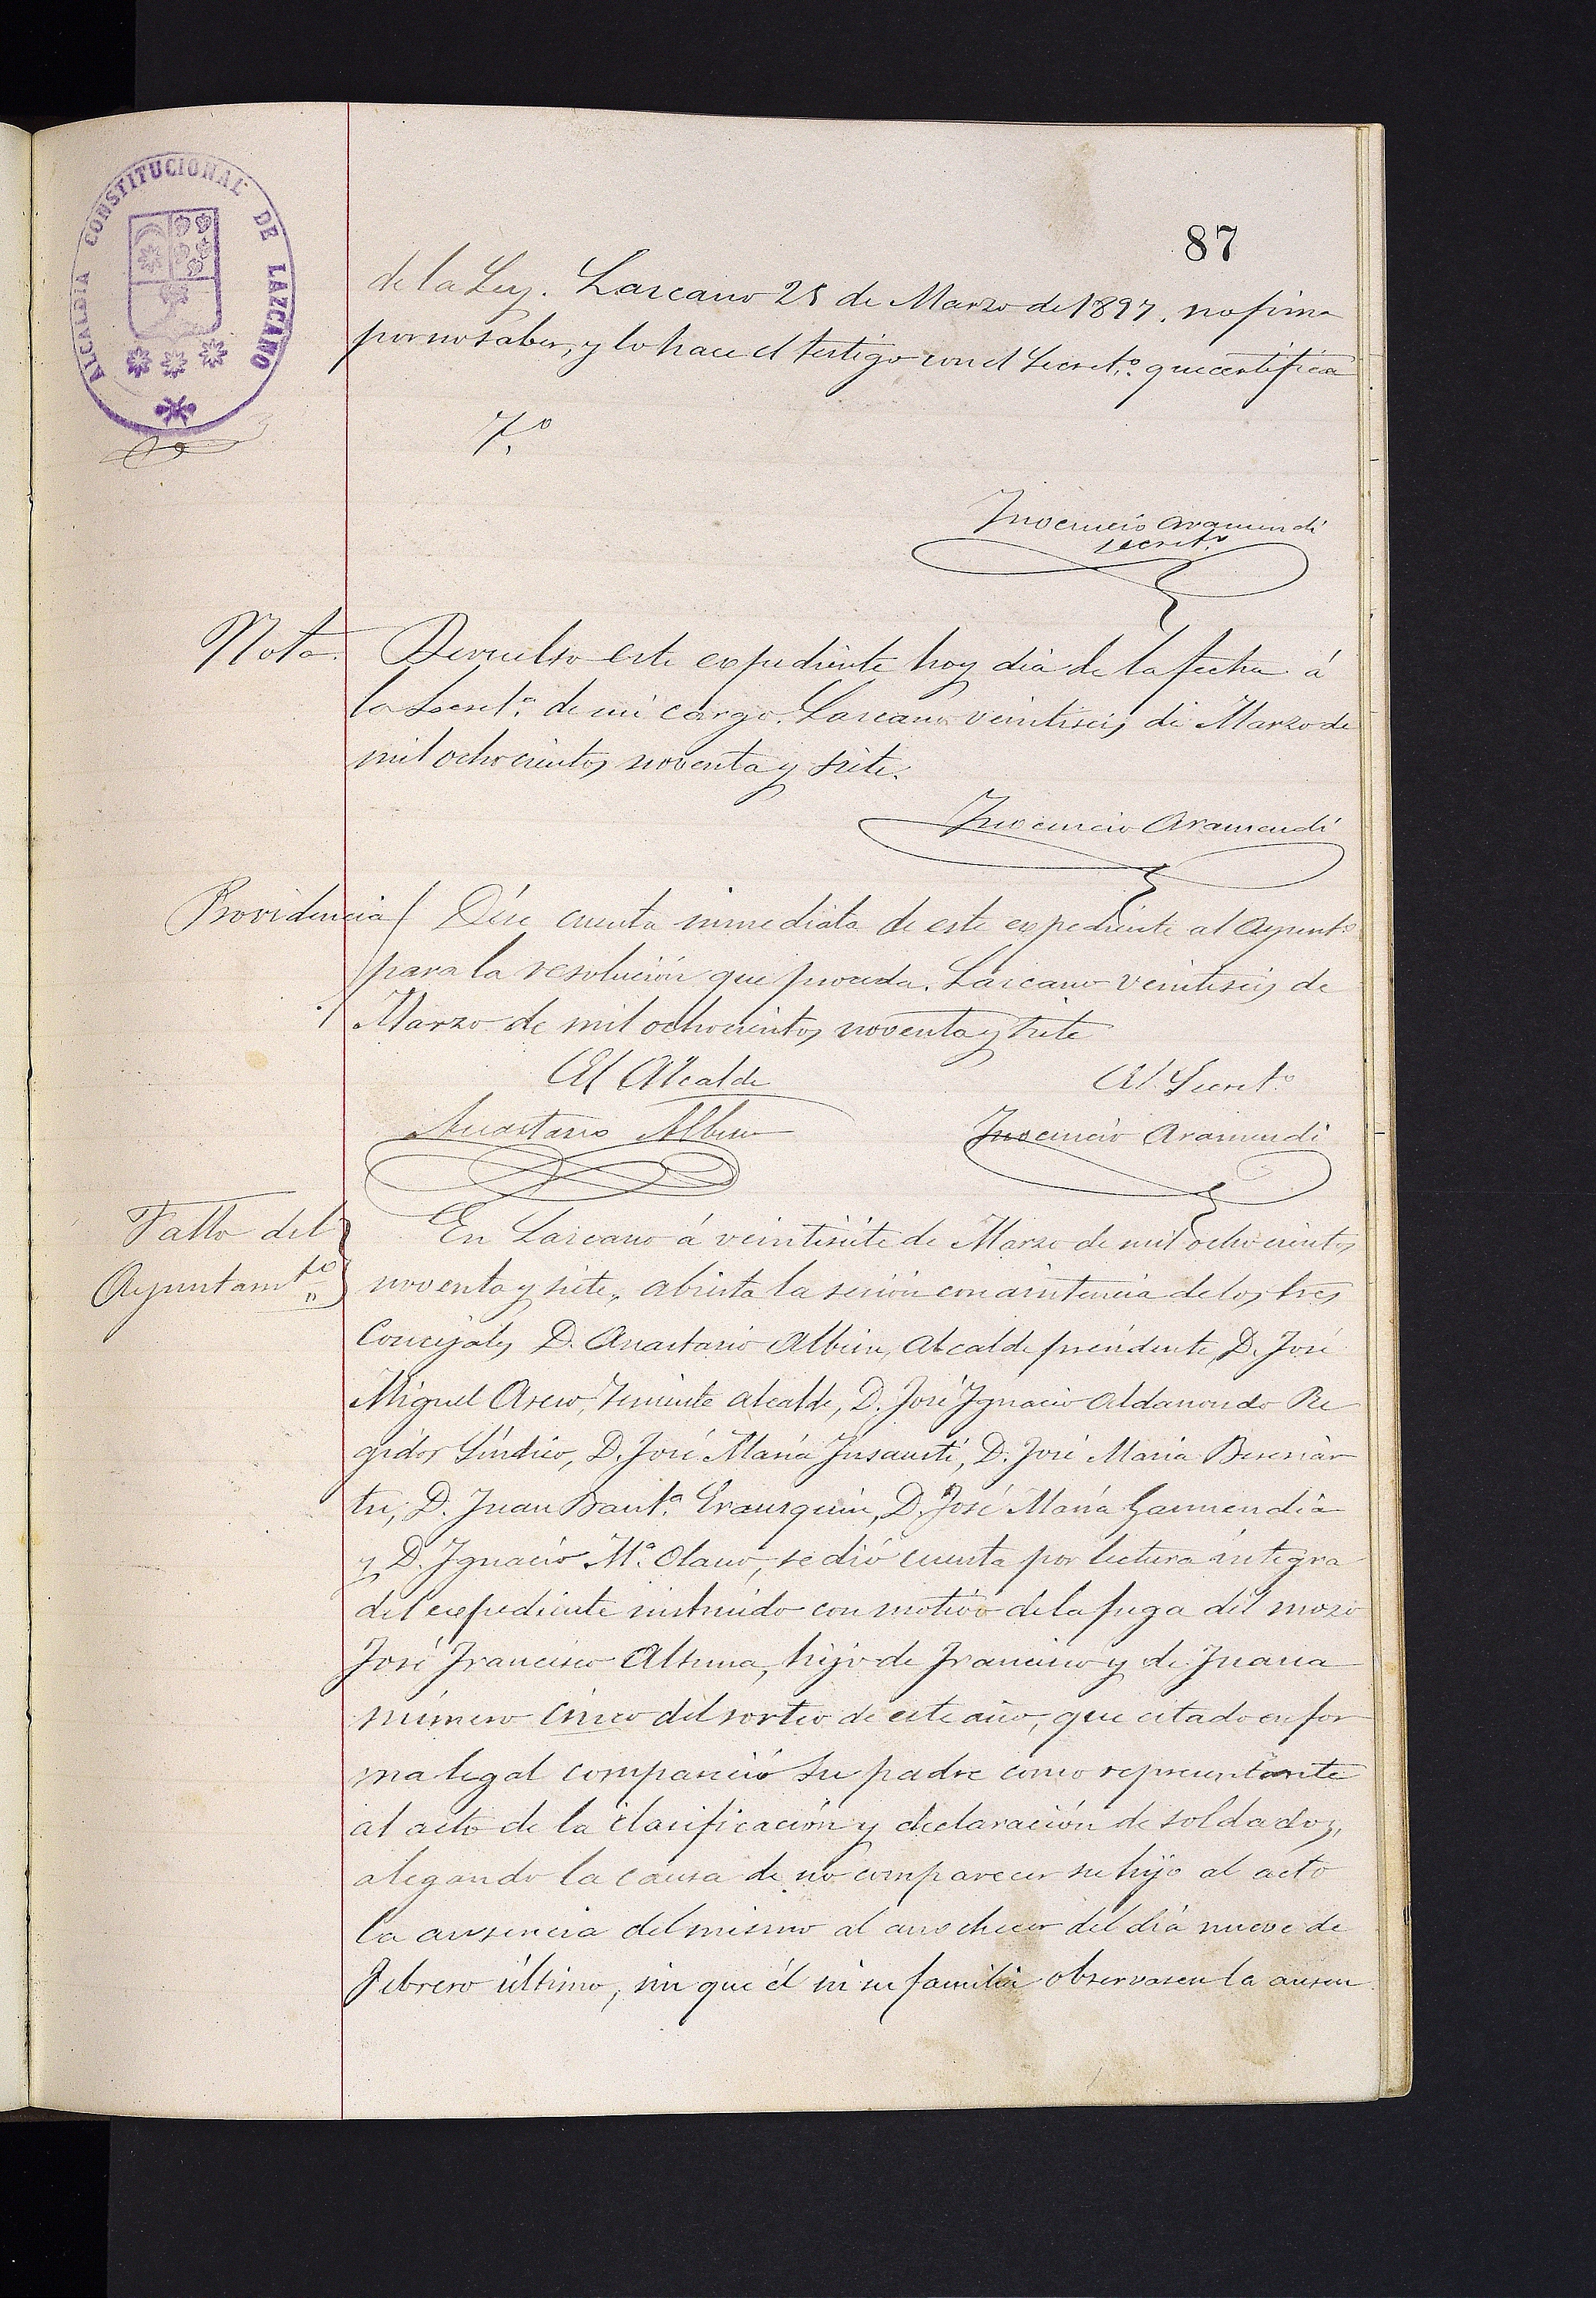 ALCALDIA CONSTITUCIONAL DE LAZCANO
87
de la Ley. Lazcano 25 de Marzo de 1897. no firma
por no saber, y lo hace el testigo con el Secret.º que certifica
Inocencio Aramendi
secret.º
Nota. Devuelto este expediente hoy dia de la fecha á
la Secret.ª de mi cargo. Lazcano veintiseis de Marzo de
mil ochocientos noventa y siete.
Inocencio Aramendi
Providencia Dése cuenta inmediata de este expediente al Ayunt.º
para la resolución que proceda. Lazcano veintiseis de
Marzo de mil ochocientos noventa y siete
El Alcalde El Secret.º
Anastasio Albisu Inocencio Aramendi
Fallo del
Ayuntam.to
En Lazcano á veintisiete de Marzo de mil ochocientos
noventa y siete, abierta la sesión con asistencia de los tres
Concejales D. Anastasio Albisu, Alcalde presidente, D. José
Miguel Teniente alcalde, D. José Ignacio Aldanondo Re
gidor Síndico, D. José María Insausti, D. José Maria Beresiar
tu, D. Juan Baut.ª Erausquin, D. José María Garmendia
y D. Ignacio M.ª Olano, se dió cuenta por lectura integra
del expediente instruido con motivo de la fuga del mozo
José Francisco Altuna, hijo de Francisco y de Juana
número cinco del sorteo de este año, que citado en for
ma legal compareció su padre como representante
al acto de la clasificación y declaración de soldados,
alegando la causa de no comparecer su hijo al acto
la ausencia del mismo al anochecer del día nueve de
Febrero último, sin que él ni su familia observasen la ausen